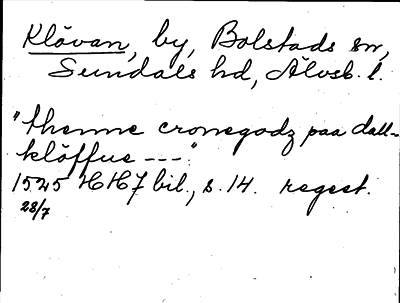 Klövan, by, Bolstads sn,
Sundals hd, Älvsb. l.
"thenne cronegodz paa dall-
klöffue ---."
1525 HH7 bil., s. 14. regest.
28/7